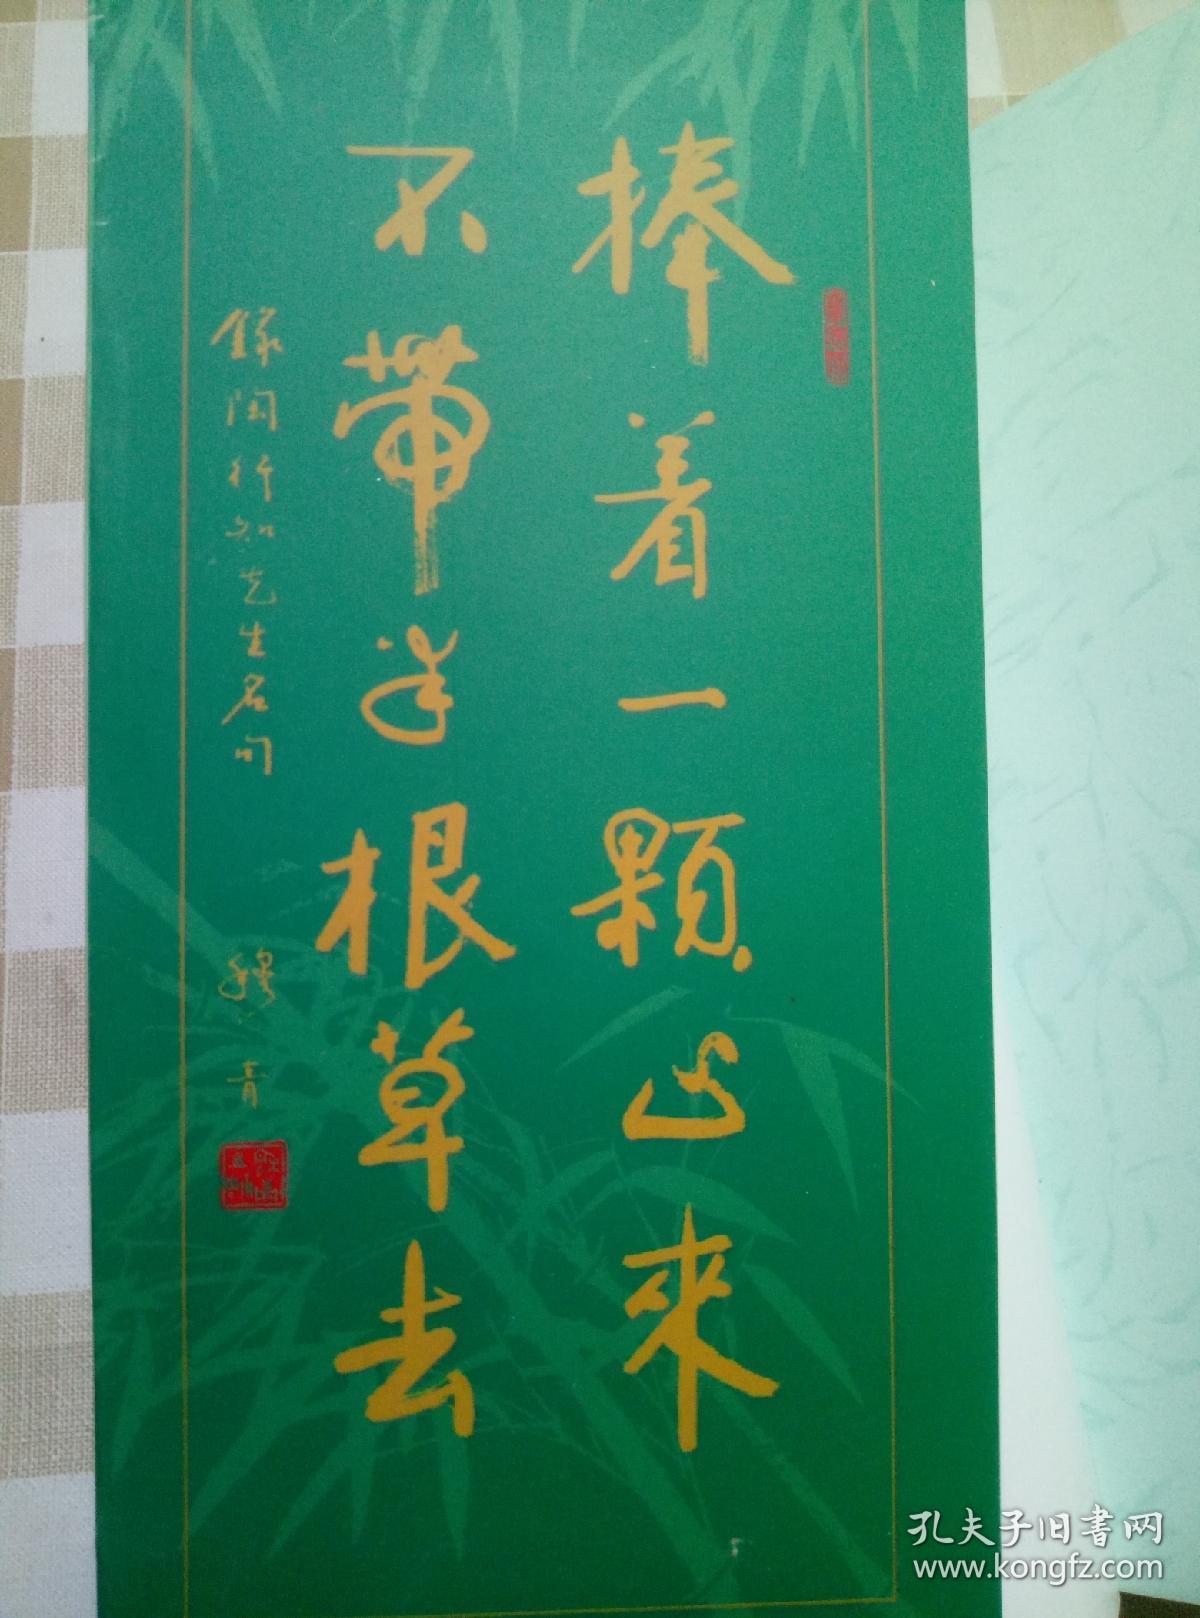 捧着一颗心来
不带半根草去
錄陶行知先生名句
穆青
孔夫子旧書网
www.kongfz.com